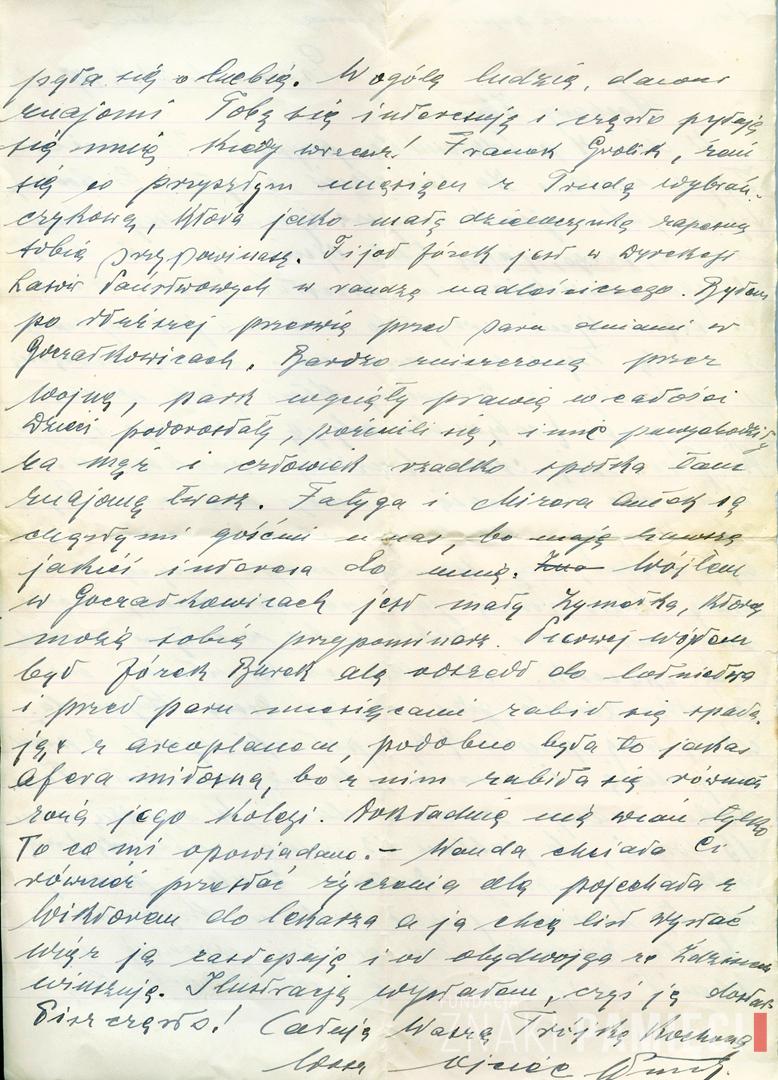 pyta się o Ciebie. Wogóle ludzie, dawni
znajomi Tobą się interesują i często pytają
się mnie kiedy wrócisz! Franek Grolik, żeni
się w przyszłym miesiącu z Trudą Wybrań-
czykową, którą jako małą dziewczynkę zapewne
sobie przypominasz. Józek jest w Dyrekcji
Lasów Państwowych w randze nadleśniczego. Byłem
po dłuższej przerwie przed paru dniami w
Goczałkowicach. Bardzo zniszczone przez
wojnę, park wycięty prawie w całości
Dzieci podorastały, pożenili się, inne powychodziły
za mąż i człowiek rzadko spotka tam
znajomą twarz. Fatyga i Mizera są
częstymi gośćmi u nas, bo mają zawsze
jakieś interesa do mnie. Wójtem
w Goczałkowicach jest mały Zymełka, którego
może sobie przypominasz. Pierwej wójtem
był Józek Burek ale odszedł do lotnictwa
i przed paru miesiącami zabił się spada-
jąc z aeroplanem, podobno była to jakaś
afera miłosna, bo z nim zabiła się również
żona jego kolegi. Dokładnie nie wiem tylko
to co mi opowiadano. – Wanda chciała Ci
również przesłać życzenia ale pojechała z
Wiktorem do lekarza a ja chcę list wysłać
więc ją zastępuję i od obydwojga ze Zdzisiem
winszuję. Ilustracje wysłałem, czyś je dostał
Pisz często! Całuję Waszą Trójkę Kochaną
Wasz Ojciec
FUNDACJA
ZNAKI PAMIĘCI